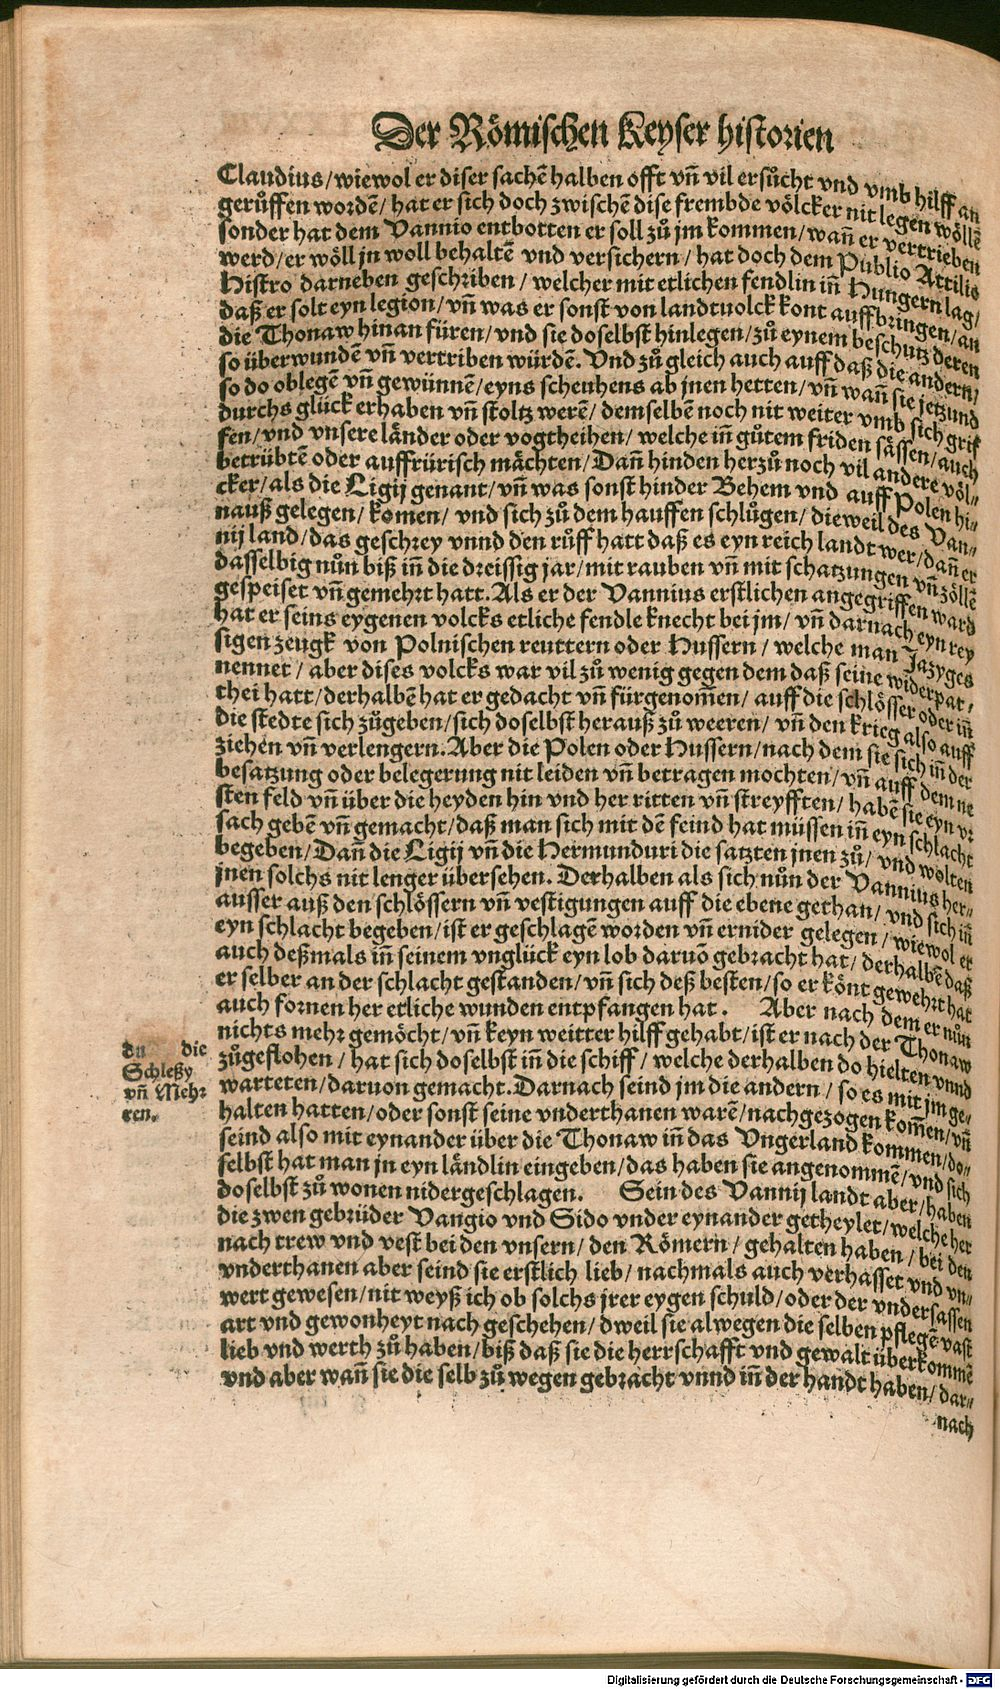 Der Römischen Keyser historien
Claudius/wiewol er diser sachē halben offt vñ vil ersůcht vnd vmb hilff an
gerůffen wordē/hat er sich doch zwischē dise frembde völcker nit legen wöllē
sonder hat dem Vannio entbotten er soll zů jm kommen/wañ er vertrieben
werd/er wöll jn woll behaltē vnd versichern/hat doch dem Publio Attilio
Histro darneben geschriben/welcher mit etlichen fendlin iñ Hungern lag/
daß er solt eyn legion/vñ was er sonst von landtuolck kont auffbringen/an
die Thonaw hinan füren/vnd sie doselbst hinlegen/zů eynem beschutz deren
so überwundē vñ vertriben würdē. Vnd zů gleich auch auff daß die andern/
so do oblegē vñ gewünnē/eyns scheuhens ab jnen hetten/vñ wañ sie jetzund
durchs glück erhaben vñ stoltz werē/demselben noch nit weiter vmb sich grif
fen/vnd vnsere länder oder vogtheihen/welche iñ gůtem friden sässen/auch
betrübtē oder auffrürisch mächten/Dañ hinden herzů noch vil andere völ⸗
cker/als die Ligij genant/vñ was sonst hinder Behem vnd auff Polen hi⸗
nauß gelegen/komen/vnd sich zů dem hauffen schlůgen/dieweil des Van⸗
nij land/das geschrey vnnd den růff hatt daß es eyn reich landt wer/dañ er
dasselbig nůn biß iñ die dreissig jar/mit rauben vñ mit schatzungen vñ zöllē
gespeiset vñ gemehrt hatt. Als er der Vannius erstlichen angegriffen ward
hat er seins eygenen volcks etliche fendle knecht bei jm/vñ darnach eyn rey
sigen zeugk von Polnischen reuttern oder Hussern/welche man Jazyges
nennet/aber dises volcks war vil zů wenig gegen dem daß seine widerpar⸗
thei hatt/derhalbē hat er gedacht vñ fürgenom̄en/auff die schlösser oder iñ
die stedte sich zůgeben/sich doselbst herauß zů weeren/vñ den krieg also auff
ziehen vñ verlengern. Aber die Polen oder Hussern/nach dem sie sich iñ der
besatzung oder belegerung nit leiden vñ betragen mochten/vñ auff dem ne
sten feld vñ über die heyden hin vnd her ritten vñ streyfften/habē sie eyn vr
sach gebē vñ gemacht/daß man sich mit dē feind hat müssen iñ eyn schlacht
begeben/Dañ die Ligij vñ die Hermunduri die satzten jnen zů/vnd wolten
jnen solchs nit lenger übersehen. Derhalben als sich nůn der Vannius her⸗
ausser auß den schlössern vñ vestigungen auff die ebene gethan/vnd sich iñ
eyn schlacht begeben/ist er geschlagē worden vñ ernider gelegen/wiewol er
auch deßmals iñ seinem vnglück eyn lob daruō gebracht hat/derhalbē daß
er selber an der schlacht gestanden/vñ sich deß besten/so er könt gewehrt hat
auch fornen her etliche wunden entpfangen hat. Aber nach dem er nůn
nichts mehr gemöcht/vñ keyn weitter hilff gehabt/ist er nach der Thonaw
zůgeflohen/hat sich doselbst iñ die schiff/welche derhalben do hielten vnnd
warteten/daruon gemacht. Darnach seind jm die andern/so es mit jm ge⸗
halten hatten/oder sonst seine vnderthanen warē/nachgezogen kom̄en/vñ
seind also mit eynander über die Thonaw iñ das Vngerland kommen/do⸗
selbst hat man jn eyn ländlin eingeben/das haben sie angenommē/vnd sich
doselbst zů wonen nidergeschlagen. Sein des Vannij landt aber/haben
die zwen gebrüder Vangio vnd Sido vnder eynander getheylet/welche her
nach trew vnd vest bei den vnsern/den Römern/gehalten haben/bei den
vnderthanen aber seind sie erstlich lieb/nachmals auch verhasset vnd vn⸗
wert gewesen/nit weyß ich ob solchs jrer eygen schuld/oder der vndersassen
art vnd gewonheyt nach geschehen/dweil sie alwegen die selben pflegē vast
lieb vnd werth zů haben/biß daß sie die herrschafft vnd gewalt überkommē
vnd aber wañ sie die selb zů wegen gebracht vnnd iñ der handt haben/dar⸗
nach
die
Schleßy
vñ Mehr
ren.
Digitalisierung gefördert durch die Deutsche Forschungsgemeinschaft - DFG